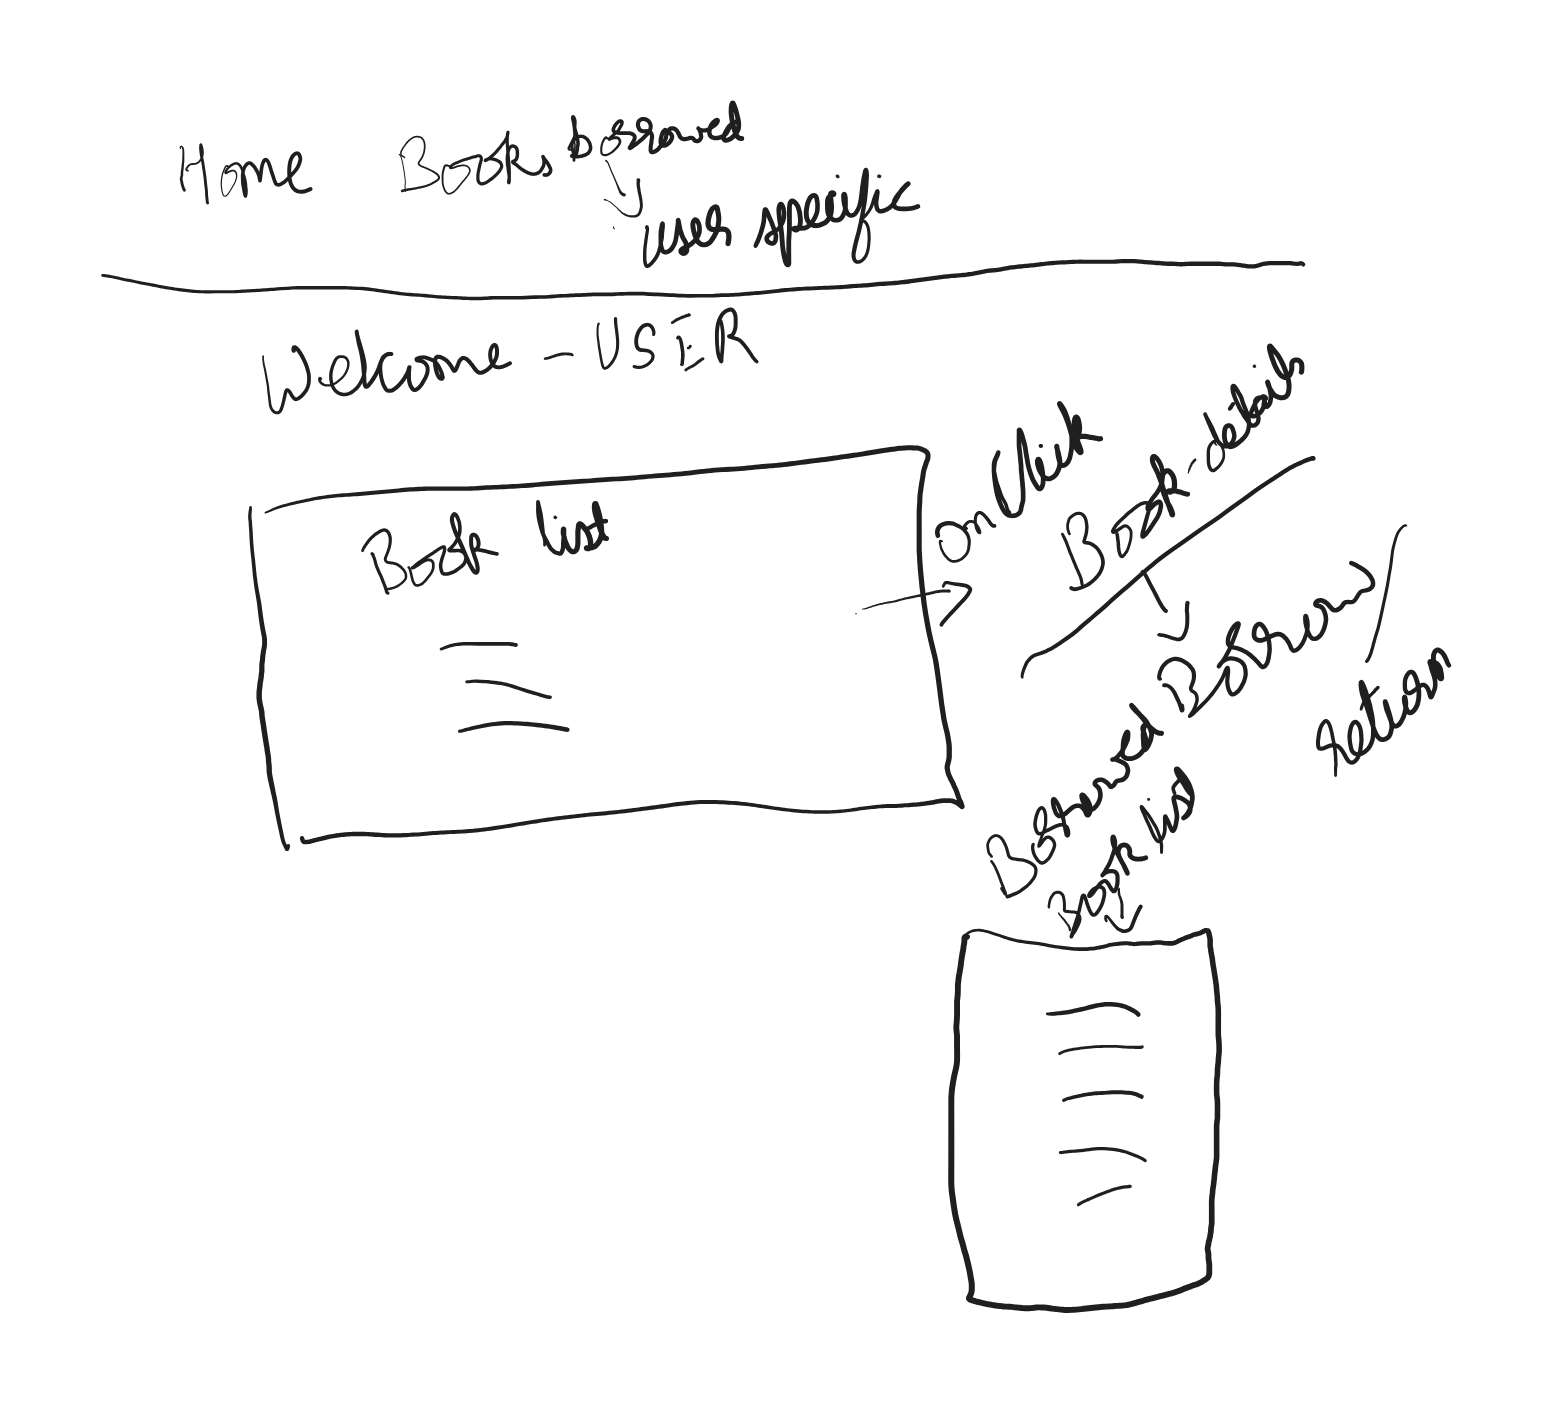 Home Books borrowed
user specific
Welcome - USER
Book list
on Click
Book-details
Borrow /
return
Borrowed
Book list